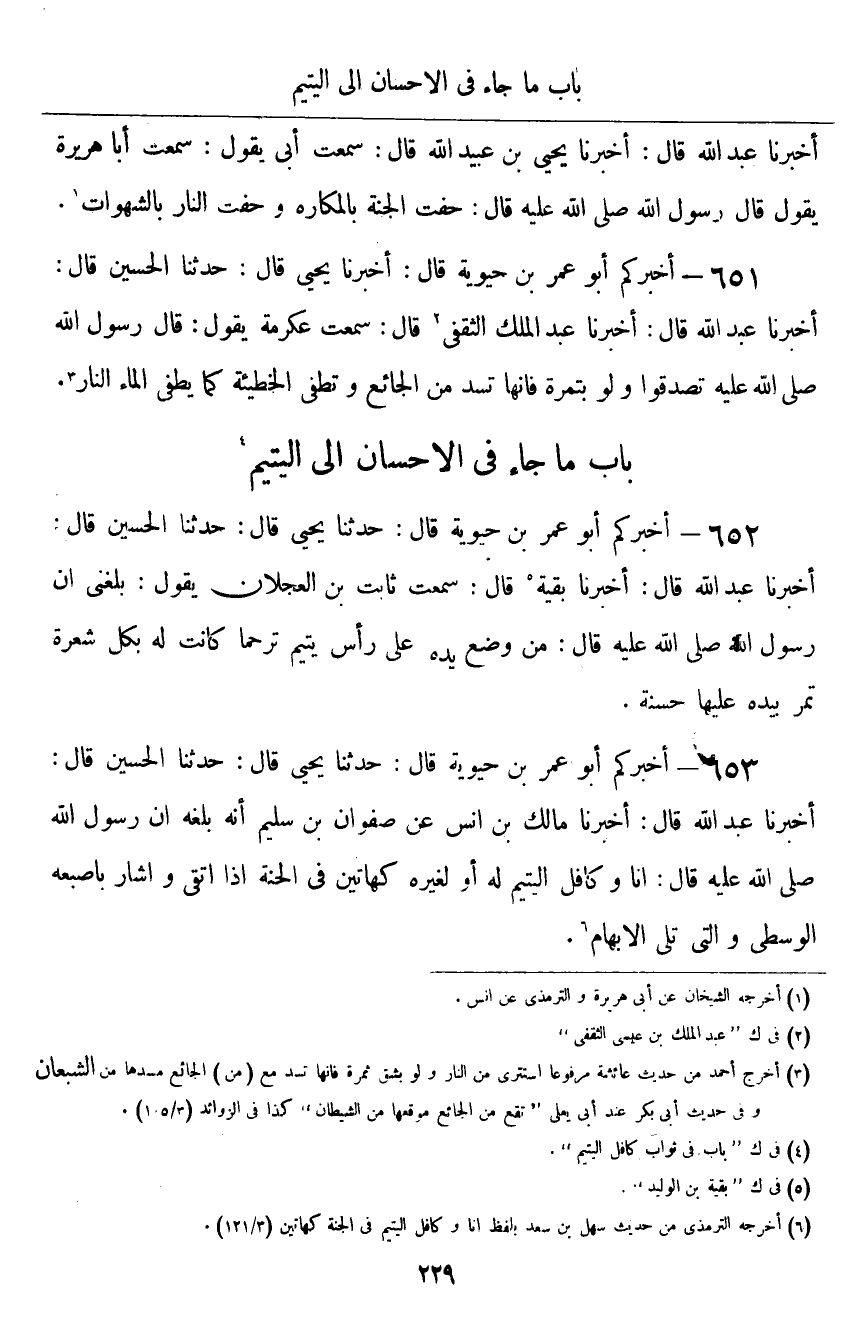 باب ما جاء فى الاحسان الى اليتيم
أخبرنا عبد الله قال : أخبرنا يحيي بن عبيد الله قال : سمعت أبى يقول : سمعت أبا هريرة
يقول قال رسول الله صلى الله عليه قال : حفت الجنة بالمكاره و حفت النار بالشهوات١ .
٦٥١ – أخبركم أبو عمر بن حيوية قال : أخبرنا يحيي قال : حدثنا الحسين قال :
أخبرنا عبد الله قال : أخبرنا عبد الملك الثقفى٢ قال : سمعت عكرمة يقول : قال رسول الله
صلى الله عليه تصدقوا و لو بتمرة فانها تسد من الجائع و تطفى الخطيئة كما يطفى الماء النار٣.
باب ما جاء فى الاحسان الى اليتيم٤
٦٥٢ – أخبركم أبو عمر بن حيوية قال : حدثنا يحيي قال : حدثنا الحسين قال :
أخبرنا عبد الله قال : أخبرنا بقية٥ قال : سمعت ثابت بن العجلان يقول : بلغنى ان
رسول الله صلى الله عليه قال : من وضع يده على رأس يتيم ترحما كانت له بكل شعرة
تمر بيده عليها حسنة .
٦٥٣ – أخبركم أبو عمر بن حيوية قال : حدثنا يحيي قال : حدثنا الحسين قال :
أخبرنا عبد الله قال : أخبرنا مالك بن انس عن صفوان بن سليم أنه بلغه ان رسول الله
صلى الله عليه قال : انا و كافل اليتيم له أو لغيره كهاتين فى الجنة اذا اتقى و اشار باصبعه
الوسطى و التى تلى الابهام٦ .
(١) أخرجه الشيخان عن أبى هريرة و الترمذى عن انس .
(٢) فى ك " عبد الملك بن عيسى الثقفى "
(٣) أخرج أحمد من حديث عائشة مرفوعا استترى من النار و لو بشق تمرة فانها تسد مع (من) الجائع مسدها من الشبعان
و فى حديث أبى بكر عند أبى يعلى " تقع من الجائع موقعها من الشبعان " كذا فى الزوائد (٣/١٠٥) .
(٤) فى ك " باب فى ثواب كافل اليتيم " .
(٥) فى ك " بقية بن الوليد " .
(٦) أخرجه الترمذى من حديث سهل بن سعد بلفظ انا و كافل اليتيم فى الجنة كهاتين (٣/١٢١) .
٢٢٩